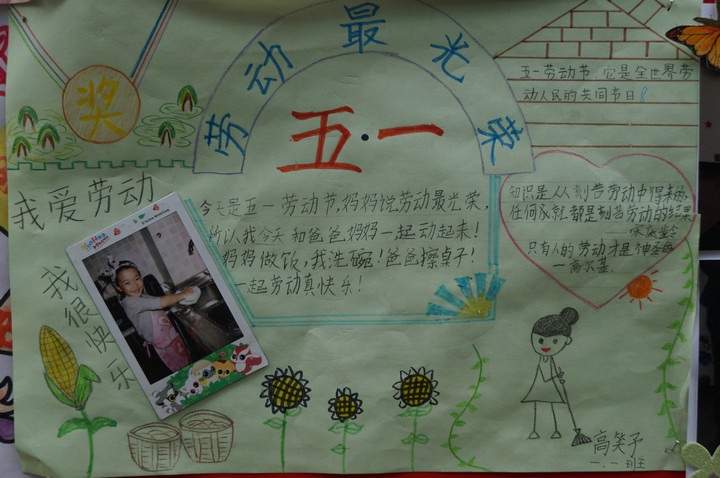 劳动最光荣
奖
五·一
五一劳动节，它是全世界劳
动人民的共同节日！
我爱劳动
我很快乐
今天是五一劳动节，妈妈说劳动最光荣，
所以我今天和爸爸，妈妈一起动起来！
妈妈做饭，我洗碗！爸爸擦桌子！
一起劳动真快乐！
知识是从刻苦劳动中得来的
任何成就都是刻苦劳动的结果
——宋庆龄
只有人的劳动才是神圣的
—高尔基
高笑予
一.一班